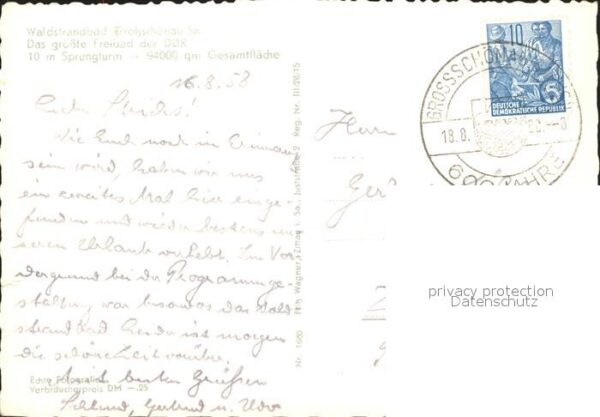 Waldstrandbad Großschönau Sa.
Das größte Freibad der DDR
10 m Sprungturm — 94000 qm Gesamtfläche
16.8.58
Wie Euch noch in Erinnerung
sein wird, haben wir uns
ein zweites Mal hier einge-
funden und wieder bestens un-
seren Urlaub verlebt. Im Vor-
dergrund bei der Programmge-
staltung war besonders das Wald-
strandbad. Leider ist morgen
die Schönheit vorüber.
Mit besten Grüßen
Gertrud u. Udo
Echte Fotografie
Verbraucherpreis DM -.25
Nr. 1680 Wagner, Zittau i. Sa., Juststraße 2 Reg. Nr. III/28/15
Herrn
10
DEUTSCHE
DEMOKRATISCHE REPUBLIK
GROSSSCHÖNAU
18.8.
600 JAHRE
privacy protection
Datenschutz